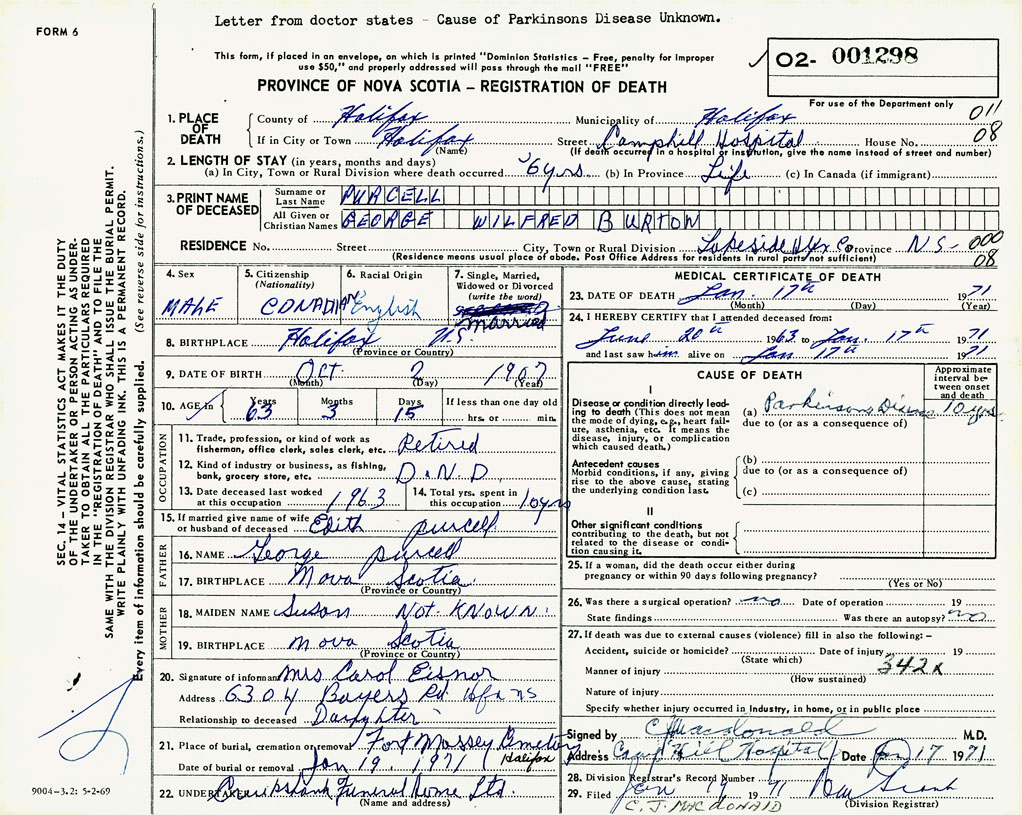 Letter from doctor states - Cause of Parkinsons Disease Unknown.
FORM 6
This form, if placed in an envelope, on which is printed "Dominion Statistics - Free, penalty for improper
use $50," and properly addressed will pass through the mail "FREE"
O2- 001298
PROVINCE OF NOVA SCOTIA - REGISTRATION OF DEATH
For use of the Department only
1. PLACE OF DEATH
County of Halifax Municipality of Halifax 011
If in City or Town Halifax Street Camphill Hospital House No. 08
(Name) (If death occurred in a hospital or institution, give the name instead of street and number)
2. LENGTH OF STAY (in years, months and days)
(a) In City, Town or Rural Division where death occurred 6yrs (b) In Province Life (c) In Canada (if immigrant)
3. PRINT NAME OF DECEASED
Surname or Last Name PURCELL
All Given or Christian Names GEORGE WILFRED BURTON
RESIDENCE No. Street City, Town or Rural Division Lakeside Hfx Co Province N.S- 000
(Residence means usual place of abode. Post Office Address for residents in rural parts not sufficient) 08
4. Sex MALE
5. Citizenship (Nationality) CONADIAN
6. Racial Origin English
7. Single, Married, Widowed or Divorced (write the word) married
8. BIRTHPLACE Halifax N.S.
(Province or Country)
9. DATE OF BIRTH Oct 2 1907
(Month) (Day) (Year)
10. AGE in Years 63 Months 3 Days 15 If less than one day old hrs. or min.
OCCUPATION
11. Trade, profession, or kind of work as fisherman, office clerk, sales clerk, etc. Retired
12. Kind of industry or business, as fishing, bank, grocery store, etc. D.N.D.
13. Date deceased last worked at this occupation 1963
14. Total yrs. spent in this occupation 10yrs
15. If married give name of wife or husband of deceased Edith purcell
FATHER
16. NAME George purcell
17. BIRTHPLACE Nova Scotia
(Province or Country)
MOTHER
18. MAIDEN NAME Susan Not-KNOWN.
19. BIRTHPLACE Nova Scotia
(Province or Country)
20. Signature of informant Mrs Carol Eisnor
Address 6304 Bayers Rd Hfx NS
Relationship to deceased Daughter
21. Place of burial, cremation or removal Fort Massey Cemetery Halifax
Date of burial or removal Jan 19, 1971
22. UNDERTAKER Cruikshank Funeral Home Ltd.
(Name and address)
MEDICAL CERTIFICATE OF DEATH
23. DATE OF DEATH Jan. 17th 1971
(Month) (Day) (Year)
24. I HEREBY CERTIFY that I attended deceased from:
June 20th 1963 to Jan. 17th 1971
and last saw him alive on Jan 17th 1971
CAUSE OF DEATH
Approximate interval between onset and death
I
Disease or condition directly leading to death (This does not mean the mode of dying, e.g., heart failure, asthenia, etc. It means the disease, injury, or complication which caused death.)
(a) Parkinsons Disease 10 yrs
due to (or as a consequence of)
Antecedent causes
Morbid conditions, if any, giving rise to the above cause, stating the underlying condition last.
(b)
due to (or as a consequence of)
(c)
II
Other significant conditions
contributing to the death, but not related to the disease or condition causing it.
25. If a woman, did the death occur either during
pregnancy or within 90 days following pregnancy?
(Yes or No)
26. Was there a surgical operation? no Date of operation 19
State findings Was there an autopsy? no
27. If death was due to external causes (violence) fill in also the following: -
Accident, suicide or homicide? Date of injury 19
(State which)
Manner of injury 342x
(How sustained)
Nature of injury
Specify whether injury occurred in industry, in home, or in public place
Signed by C J Macdonald M.D.
Address Camp Hill Hospital Date Jan 17 1971
28. Division Registrar's Record Number
29. Filed Jan 19 1971
(Division Registrar)
C. J. MACDONALD
SEC. 14 - VITAL STATISTICS ACT MAKES IT THE DUTY
OF THE UNDERTAKER OR PERSON ACTING AS UNDERTAKER
TO OBTAIN ALL THE PARTICULARS REQUIRED
IN THE "REGISTRATION OF DEATH" AND TO FILE THE
SAME WITH THE DIVISION REGISTRAR WHO SHALL ISSUE THE BURIAL PERMIT.
WRITE PLAINLY WITH UNFADING INK. THIS IS A PERMANENT RECORD.
Every item of information should be carefully supplied. (See reverse side for instructions.)
9004-3.2: 5-2-69